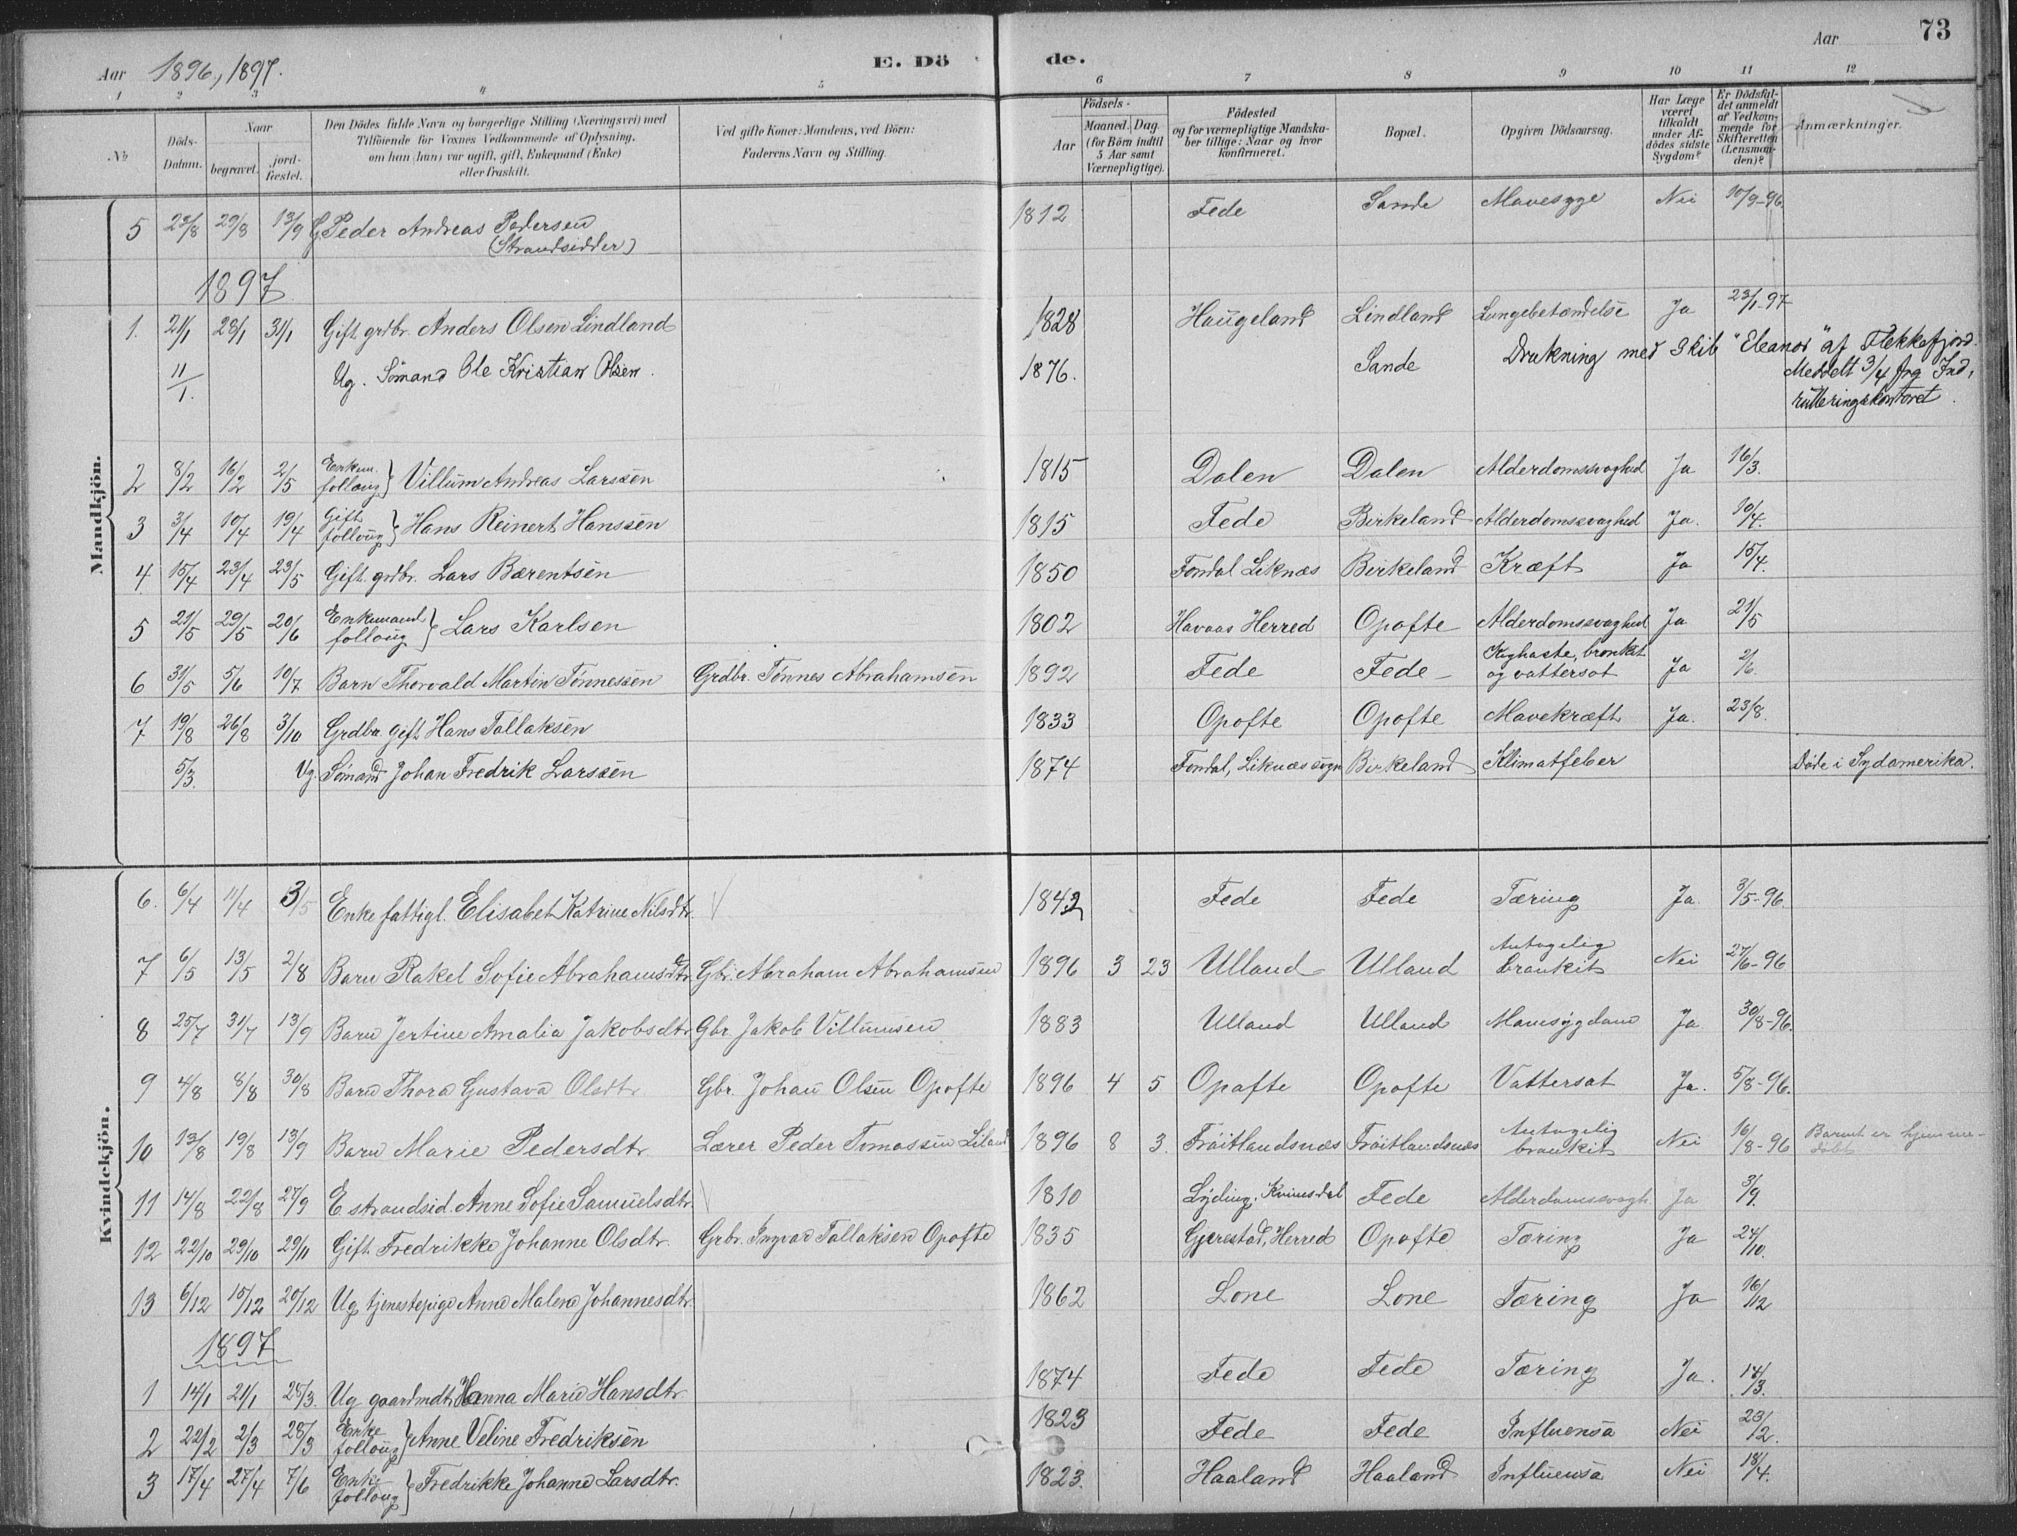 73
Aar 1896, 1897. E. Dö de. Aar
1 2 3 4 5 6 7 8 9 10 11 12
No Döds-Datum. Naar begravet. jordfæstet. Den Dödes fulde Navn og borgerlige Stilling (Næringsvei) med Tilföiende for Voxnes Vedkommende af Oplysning, om han (hun) var ugift, gift, Enkemand (Enke) eller fraskilt. Ved gifte Koner: Mandens, ved Börn: Faderens Navn og Stilling. Födsels- Aar Maaned. Dag. (for Börn indtil 5 Aar samt Værnepligtige). Födested og for værnepligtige Mandskaber tillige: Naar og hvor konfirmeret. Bopæl. Opgiven Dödsaarsag. Har Læge været tilkaldt under Afdödes sidste Sygdom? Er Dödsfaldet anmeldt af Vedkommende for Skifteretten (Lensmanden)? Anmærkninger.
Mandkjön.
5 23/8 29/8 13/9 G Peder Andreas Pedersen (Strandsidder) 1812 Fede Sande Mavesyge Nei 10/9-96
1897
1. 21/1 28/1 31/1 Gift grdbr. Anders Olsen Lindland 1828 Haugeland Lindland Lungebetændelse Ja 23/1-97
11/1. Ug. Sömand Ole Kristian Olsen. 1876. Sande Drukning med Skib "Eleanor" af Flekkefjord. Meddelt 3/4 fra Indrulleringskontoret.
2 8/2 16/2 2/5 Enkem. folloug } Villum Andreas Larssen 1815 Dalen Dalen Alderdomssvaghed Ja 16/3.
3 3/4 10/4 19/4 Gift folloug } Hans Reinert Hanssen 1815 Fede Birkeland Alderdomssvaghed Ja. 10/4.
4. 15/4 23/4 23/5 Gift grdbr. Lars Bærentsen 1850 Fondal Liknæs Birkeland Kræft Ja 15/4.
5 21/5 29/5 20/6 Enkemand folloug } Lars Karlsen 1802 Havaas Herred Opofte Alderdomssvaghed Ja 21/5
6 31/5 5/6 10/7 Barn Thorvald Martin Tönnessen Grdbr. Tönnes Abrahamsen 1892 Fede Fede Kighoste, bronkit og vattersot Ja 2/6.
7 19/8 26/8 3/10 Grdbr gift Hans Tallaksen 1833 Opofte Opofte Mavekræft Ja. 23/8.
5/3. Ug. Sömand Johan Fredrik Larssen 1874 Fondal, Liknæs sogn Birkeland Klimatfeber Döde i Sydamerika.
Kvindekjön.
6. 6/4 11/4 3/5 Enke fattigl. Elisabet Katrine Nilsdtr. 1842 Fede Fede Tæring Ja. 3/5-96.
7 6/5 13/5 2/8 Barn Rakel Sofie Abrahamsdtr Gbr. Abraham Abrahamsen 1896 3 23 Ulland Ulland Antagelig bronkit Nei 27/6-96
8 25/7 31/7 13/9 Barn Jertine Amalia Jakobsdtr Gbr Jakob Villumsen 1883 Ulland Ulland Mavesygdom Ja 30/8-96.
9 4/8 8/8 30/8 Barn Thora Gustava Olsdtr. Gbr. Johan Olsen Opofte 1896 4 5 Opofte Opofte Vattersot Ja. 5/8-96.
10 13/8 19/8 13/9 Barn Marie Pedersdtr. Lærer Peder Tomassen Liland 1896 8 3. Fröitlandsnæs Fröitlandsnæs Antagelig bronkit Nei 16/8-96 Barnet er hjemmedöbt
11 14/8 22/8 27/9 E strandsid. Anne Sofie Samuelsdtr 1810 Lyding, Kvinesdal Fede Alderdomssvagh. Ja 3/9.
12 22/10 29/10 29/11 Gift Fredrikke Johanne Olsdtr. Grbr. Ingvar Tallaksen Opofte 1835 Gjerestad, Herred Opofte Tæring Ja 24/10.
13 6/12 15/12 20/12 Ug tjenestepige Anne Malene Johannesdtr. 1862 Lone Lone Tæring Ja 16/12
1897
1 14/1 21/1 25/3. Ug gaardmdtr Hanna Marie Hansdtr. 1874 Fede Fede Tæring Ja. 14/3.
2 22/2 2/3 28/3 Enke folloug } Anne Veline Fredriksen 1823 Fede Fede Influensa Nei 23/2.
3 17/4 27/4 7/6 Enke folloug } Fredrikke Johanne Larsdtr. 1823. Haaland Haaland Influensa Nei 18/4.